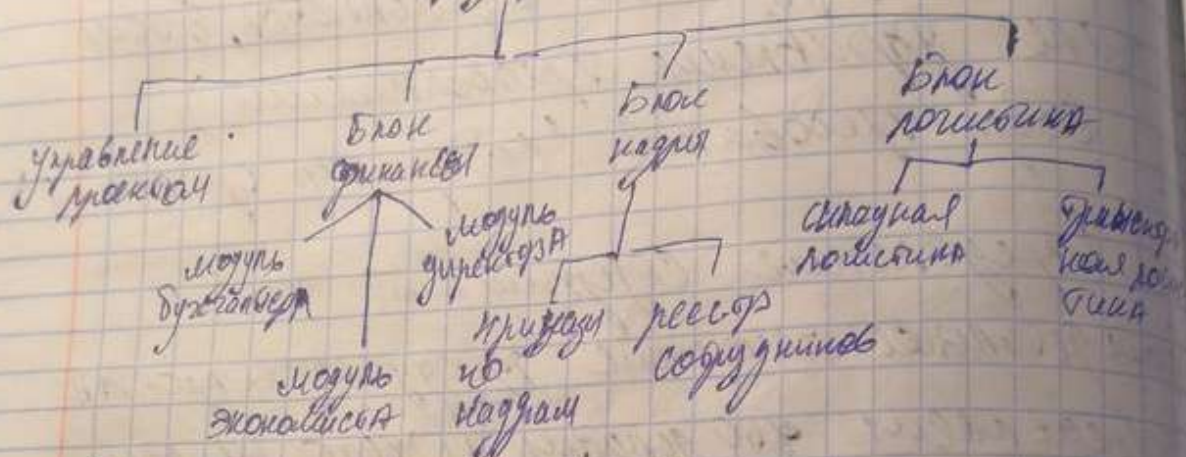 Управление
проектом
Блок
финансы
Блок
кадры
Блок
логистика
модуль
бухгалтера
модуль
директора
модуль
экономиста
приказы
по
кадрам
реестр
сотрудников
складная
логистика